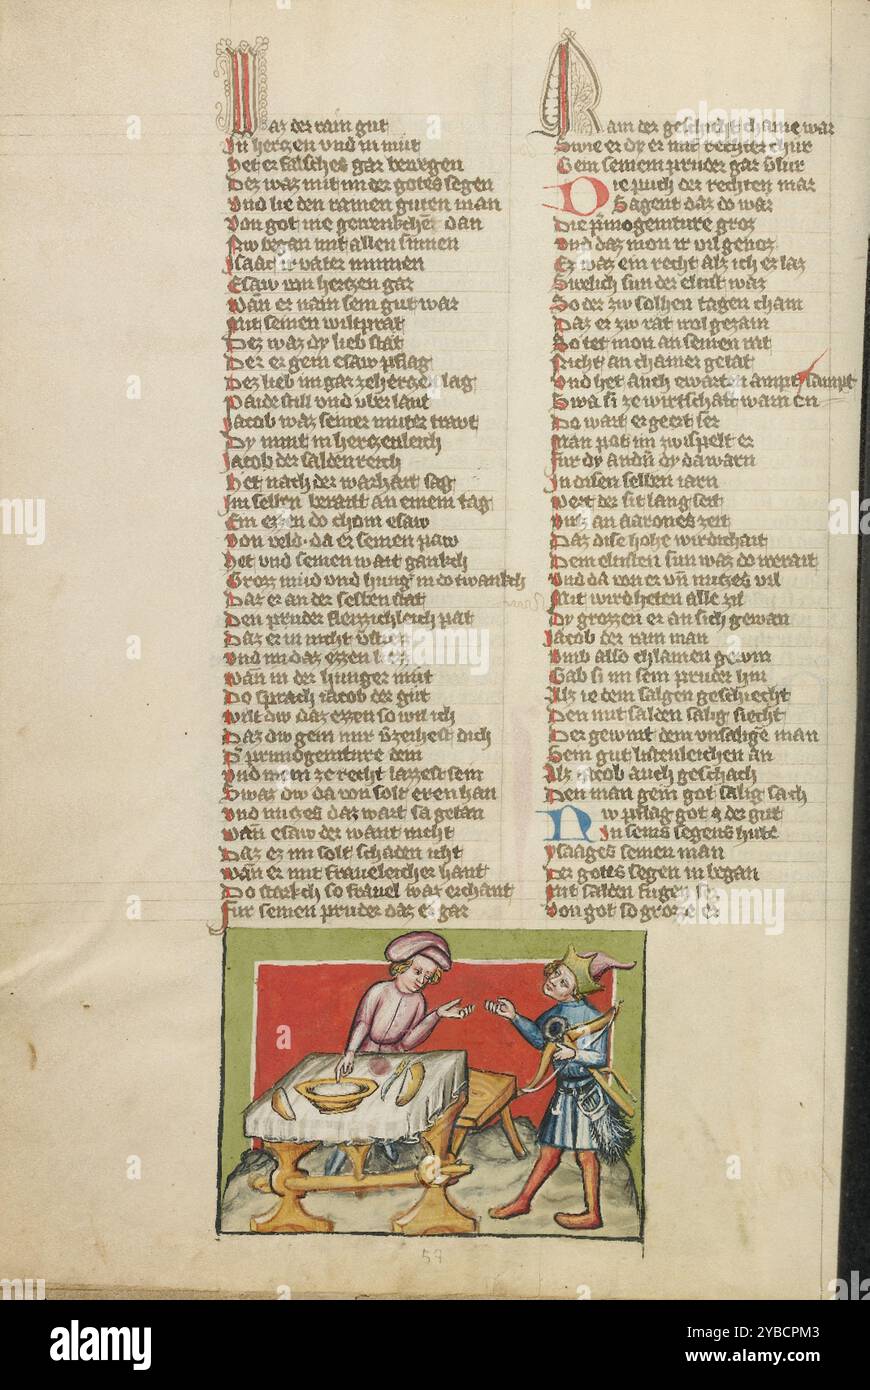 Waz der rain gut
In herczen vnd in mut
Het er falsches gar bewegen
Dez waz mit im der gotes segen
Vnd lie den rainen guten man
Von got nie gewenkchen dan
Nw began mit allen sinnen
Isaac ir vater minnen
Esaw von herczen gar
Wan er nam sein gut war
Mit seinen wiltprat
Dez waz dy lieb stat
Der er gein esaw pflag
Dez lieb im gar ze herczen lag
Paide still vnd vber laut
Jacob waz seiner muter trawt
Dy minnt in herczenleich
Jacob der salden reich
Het nach der warhait sag
Im selben berait an einem tag
Ein ezzen do chom esaw
Von veld da er seinen paw
Het vnd seinen wait
Grozz müd vnd hung in do twankch
Daz er an der selben stat
Den pruder fleizzichleich pat
Daz er in nicht
Vnd im daz ezzen
Wan in der hunger müt
Do sprach iacob der gut
Wilt dw daz ezzen so wil ich
Daz dw gein mir v̄zeihest dich
D̄ primogeniture dein
Vnd mein ze recht lazzest sein
Swaz dw da von solt eren han
Vnd nuczes daz wart getan
Wan esaw der want nicht
Daz ez im solt schaden icht
Wan er mit fraueleicher hant
Do starkch so frauel waz erchant
Fur seinen pruder daz er gar
Kam der geschicht chaine war
Swie er dy er mit rechter chür
Gein seinem pruder gar v̄lur
Die puch der rechten mar
Sagent daz do war
Die p̄mogeniture groz
Vnd daz mon ir vil genoz
Ez waz ein recht alz ich ez laz
Swelich sun der eltist waz
So der zw solhen tagen cham
Daz er zw rat wol gezam
So tet mon an seinen rat
Nicht an chainer getat
Vnd het auch ewarten ampt sampt
Swa si ze wirtschaft warn en
Do wart er geert ser
Man pot im zwispelt er
Fur dy andn̄ dy da warn
In disen selben iarn
Wert der sit lang seit
Vncz an aarones zeit
Daz dise hohe wirdichait
Dem eltisten sun waz do berait
Vnd da von er vn̄ nuczes vil
Mit wirdheten alle zil
Dy grozzen er an sich gewan
Jacob der rain man
Vmb also chlainen gewin
Gab si im sein pruder hin
Alz ie dem salgen geschiecht
Den mit salden salig siecht
Der gewint dem vnsalige man
Sein gut listenleichen an
Alz iacob auch geschach
Den man gein got salig sach
Nw pflag got der gut
In seins segens hüte
Ysaages seinen man
Der gotes segen in began
Mit salden fugen
Von got so grozze er
57
alamy
Image ID: 2YBCPM3
www.alamy.com